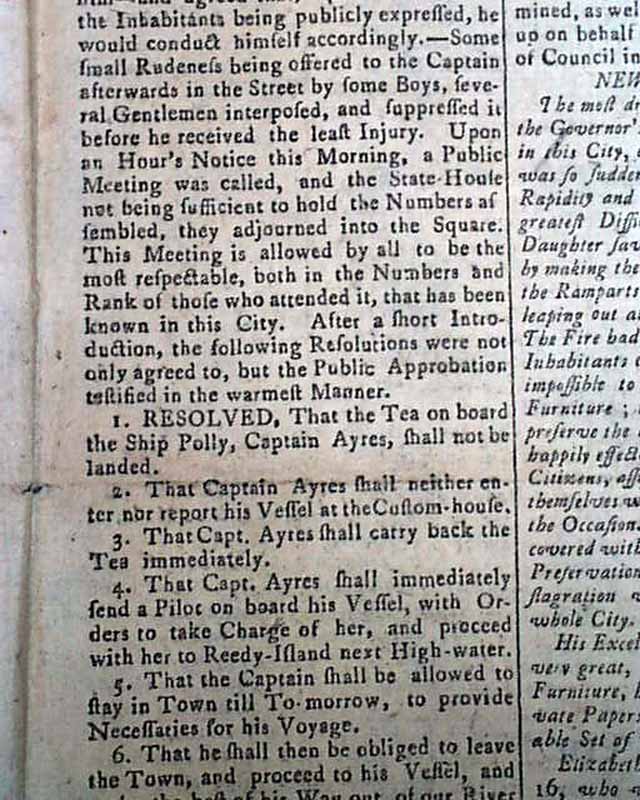 the Inhabitants being publicly expreſſed, he
would conduct himſelf accordingly.—Some
ſmall Rudeneſs being offered to the Captain
afterwards in the Street by ſome Boys, ſeve-
ral Gentlemen interpoſed, and ſuppreſſed it
before he received the leaſt Injury. Upon
an Hour's Notice this Morning, a Public
Meeting was called, and the State-Houſe
not being ſufficient to hold the Numbers aſ
ſembled, they adjourned into the Square.
This Meeting is allowed by all to be the
moſt reſpectable, both in the Numbers and
Rank of thoſe who attended it, that has been
known in this City. After a ſhort Intro-
duction, the following Reſolutions were not
only agreed to, but the Public Approbation
teſtified in the warmeſt Manner.
1. RESOLVED, That the Tea on board
the Ship Polly, Captain Ayres, ſhall not be
landed.
2. That Captain Ayres ſhall neither en-
ter nor report his Veſſel at the Cuſtom-houſe.
3. That Capt. Ayres ſhall carry back the
Tea immediately.
4. That Capt. Ayres ſhall immediately
ſend a Pilot on board his Veſſel, with Or-
ders to take Charge of her, and proceed
with her to Reedy-Iſland next High-water.
5. That the Captain ſhall be allowed to
ſtay in Town till To-morrow, to provide
Neceſſaries for his Voyage.
6. That he ſhall then be obliged to leave
the Town, and proceed to his Veſſel, and
the beſt of his Way out of our River
mined, as wel
up on behalf
of Council in
NEW
The moſt dr
the Governor'
in this City,
was ſo ſudden
Rapidity and
greateſt Diffi
Daughter ſav
by making the
the Ramparts
leaping out a
The Fire had
Inhabitants
impoſſible to
Furniture ;
preſerve the
happily effect
Citizens, aſſ
themſelves w
the Occaſion.
covered with
Preſervation
flagration
whole City.
His Excel
very great,
Furniture,
vate Papers
able Set of
Elizabeth
16, who